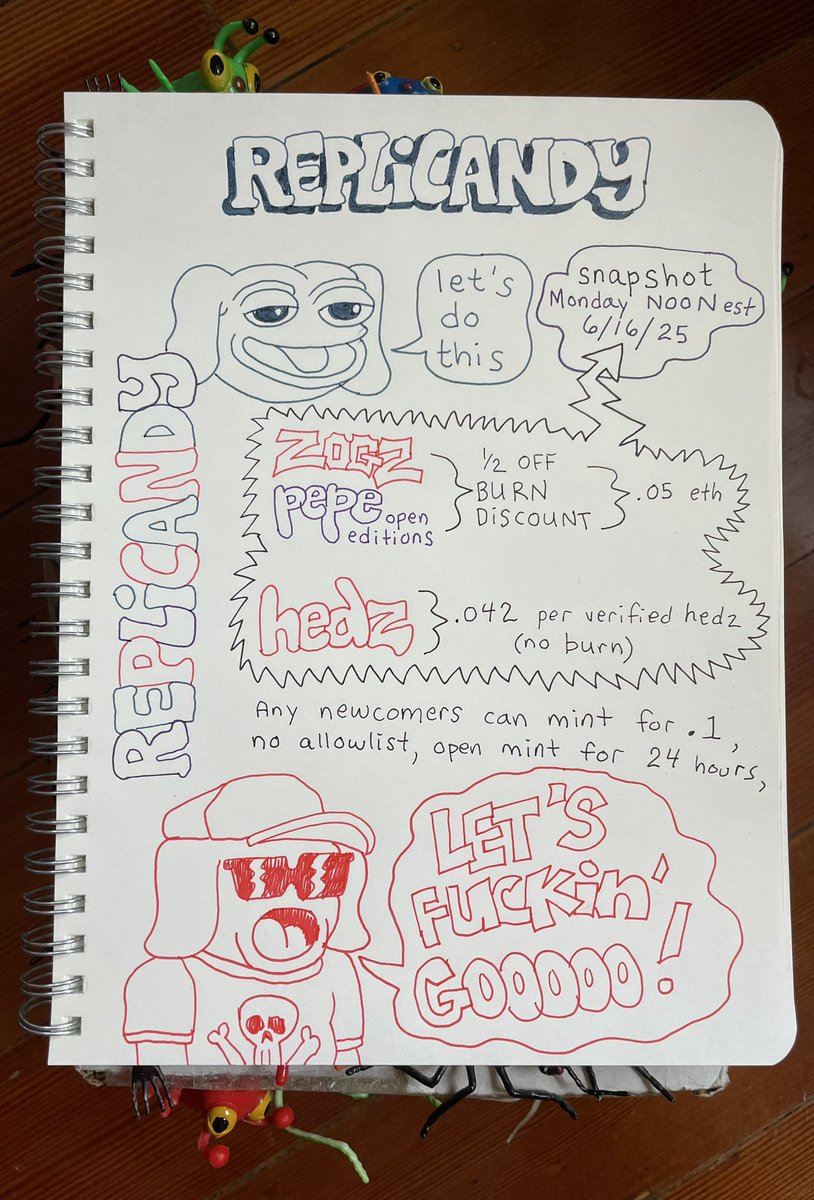 REPLiCANDY
let's
do
this
snapshot
Monday NOON est
6/16/25
REPLiCANDY
ZOGZ
pepe open
editions
1/2 OFF
BURN
DISCOUNT
.05 eth
hedz
.042 per verified hedz
(no burn)
Any newcomers can mint for .1,
no allowlist, open mint for 24 hours,
LET'S
FUCKin'
GOOOOO!